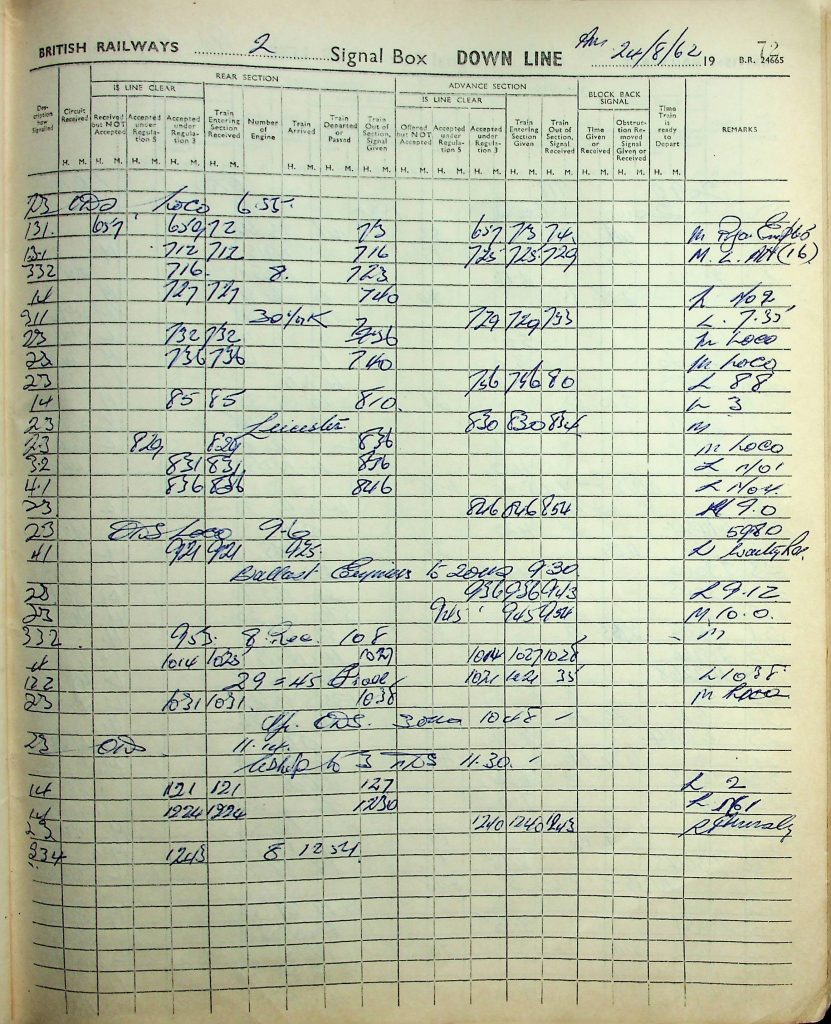 BRITISH RAILWAYS 2 Signal Box DOWN LINE 24/8/62 19 72 B.R. 24665
REAR SECTION ADVANCE SECTION
IS LINE CLEAR IS LINE CLEAR BLOCK BACK SIGNAL
Description how Signalled Circuit Received Received but NOT Accepted Accepted under Regulation 5 Accepted under Regulation 3 Train Entering Section Received Number of Engine Train Arrived Train Departed or Passed Train Out of Section, Signal Given Offered but NOT Accepted Accepted under Regulation 5 Accepted under Regulation 3 Train Entering Section Given Train Out of Section, Signal Received Time Given or Received Obstruction Removed Signal Given or Received Time Train is ready to Depart REMARKS
H. M. H. M. H. M. H. M. H. M. H. M. H. M. H. M. H. M. H. M. H. M. H. M. H. M. H. M. H. M. H. M.
23 Loco 6.55
131. 657 659 72 73 657 73 74 M
131 712 712 716 725 725 729 M. L. (16)
332 716 8. 723
14 727 727 740 L No 2
311 729 729 733 L. 7.35
23 732 732 736 M Loco
23 736 736 740 M Loco
23 736 746 80 L 88
14 85 85 810 L 3
23 Leicester 830 830 834 M
23 829 829 836 M Loco
32 831 831 836 L No1
41 836 836 846 L No 4
23 846 846 854 M 9.0
23 Loco 9.6 5980
41 921 921 925 L
Ballast Engines to 9.30
23 936 936 943 L 9.12
23 945 945 954 M 10.0
332 953 8 Rec. 108 M
4 1014 1025 1027 1014 1027 1028
122 29 = 45 1021 1021 35 L 1038
23 1031 1031 1038 M Loco
1048
23 11.14
to 3 11.30
14 121 121 127 L 2
14 1224 1224 1230 L No1
23 1240 1240 1243
334 1243 8 1254